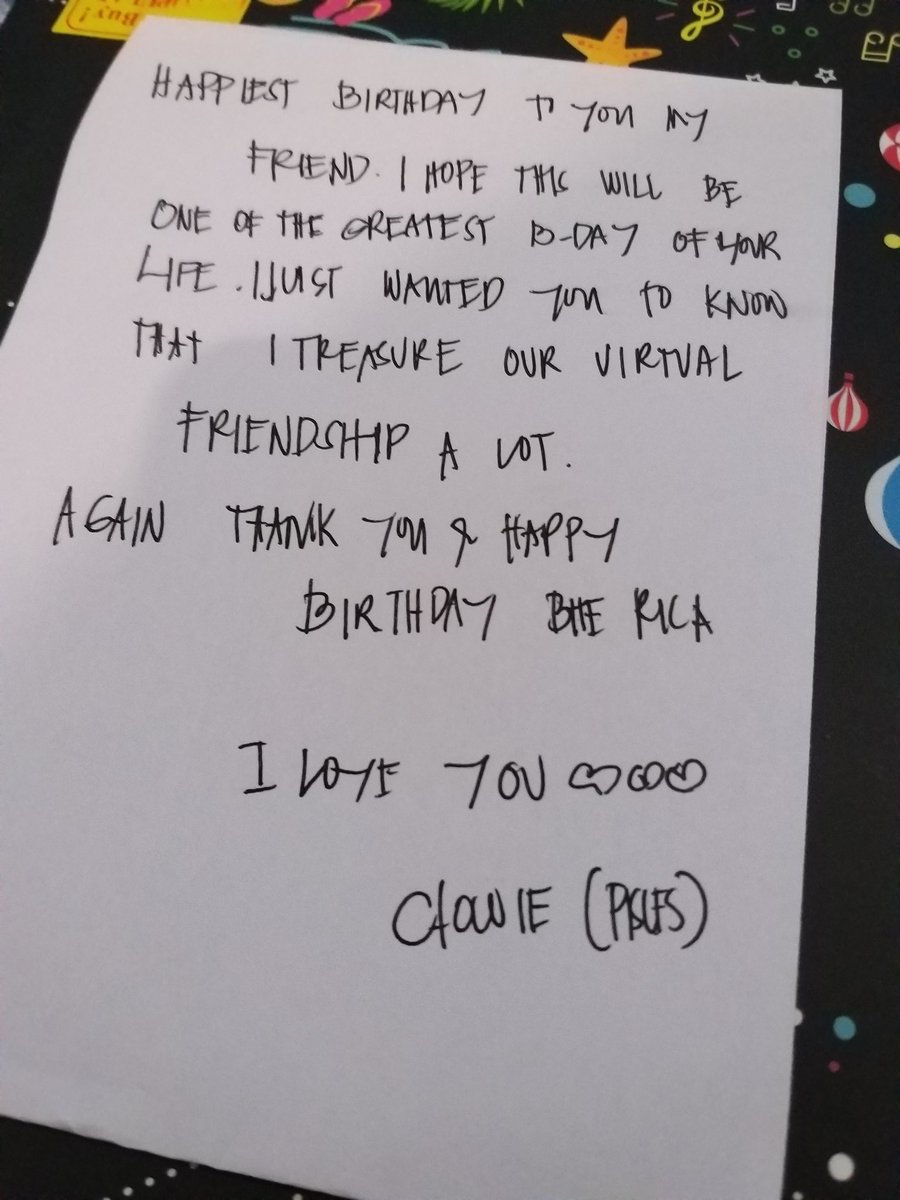 Buy!
HAPPIEST BIRTHDAY TO YOU MY
FRIEND. I HOPE THIS WILL BE
ONE OF THE GREATEST B-DAY OF YOUR
LIFE. I JUST WANTED YOU TO KNOW
THAT I TREASURE OUR VIRTUAL
FRIENDSHIP A LOT.
AGAIN THANK YOU & HAPPY
BIRTHDAY BHE RICA
I LOVE YOU